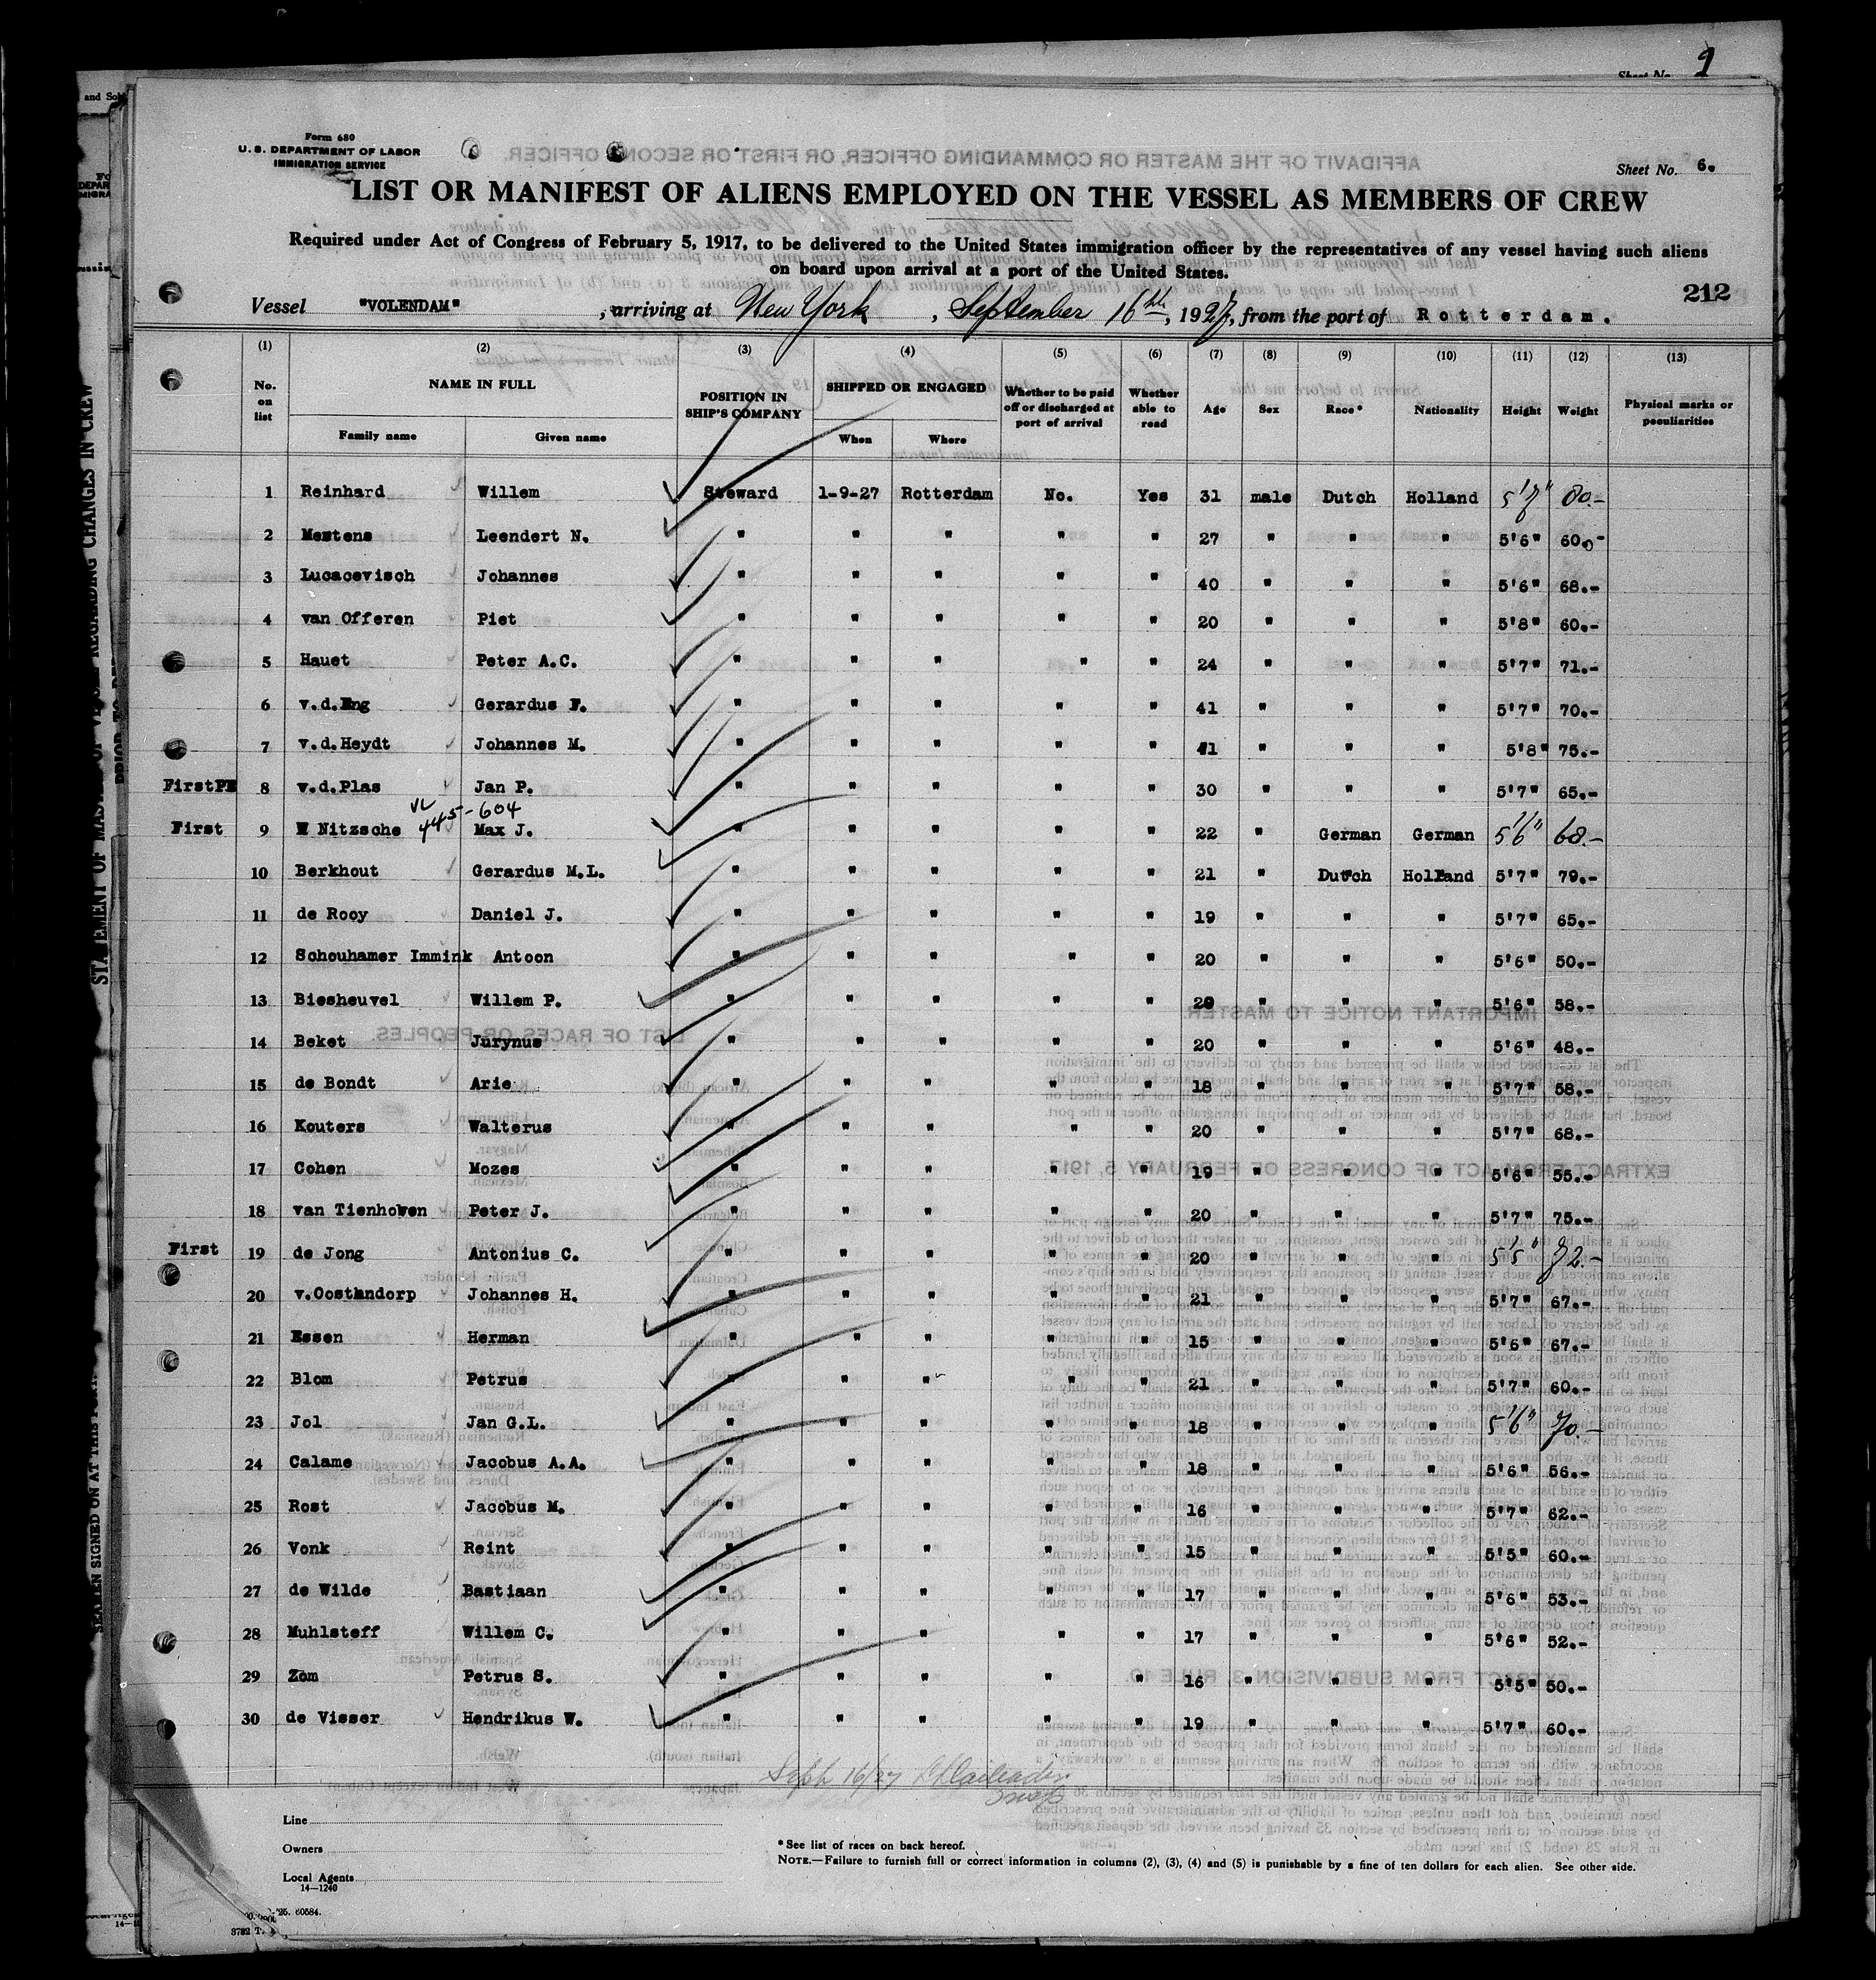 Sheet No. 9
and Sol
Form 680
U. S. DEPARTMENT OF LABOR
IMMIGRATION SERVICE
Sheet No. 6.
LIST OR MANIFEST OF ALIENS EMPLOYED ON THE VESSEL AS MEMBERS OF CREW
Required under Act of Congress of February 5, 1917, to be delivered to the United States immigration officer by the representatives of any vessel having such aliens
on board upon arrival at a port of the United States.
212
Vessel "VOLENDAM", arriving at New York, September 16th, 1927, from the port of Rotterdam.
(1) (2) (3) (4) (5) (6) (7) (8) (9) (10) (11) (12) (13)
No. on list NAME IN FULL POSITION IN SHIP'S COMPANY SHIPPED OR ENGAGED Whether to be paid off or discharged at port of arrival Whether able to read Age Sex Race* Nationality Height Weight Physical marks or peculiarities
Family name Given name When Where
1 Reinhard Willem Steward 1-9-27 Rotterdam No. Yes 31 male Dutch Holland 5'7" 80.-
2 Mestens Leendert N. " " " " " 27 " " " 5'6" 60.-
3 Lucacevisch Johannes " " " " " 40 " " " 5'6" 68.-
4 van Offeren Piet " " " " " 20 " " " 5'8" 60.-
5 Hauet Peter A.C. " " " " " 24 " " " 5'7" 71.-
6 v.d.Eng Gerardus F. " " " " " 41 " " " 5'7" 70.-
7 v.d.Heydt Johannes M. " " " " " 41 " " " 5'8" 75.-
First 8 v.d.Plas Jan P. " " " " " 30 " " " 5'7" 65.-
445-604
First 9 Nitzsche Max J. " " " " " 22 " German German 5'6" 68.-
10 Berkhout Gerardus M.L. " " " " " 21 " Dutch Holland 5'7" 79.-
11 de Rooy Daniel J. " " " " " 19 " " " 5'7" 65.-
12 Schouhamer Immink Antoon " " " " " 20 " " " 5'6" 50.-
13 Biesheuvel Willem P. " " " " " 20 " " " 5'6" 58.-
14 Beket Jurynus " " " " " 20 " " " 5'6" 48.-
15 de Bondt Arie " " " " " 18 " " " 5'7" 58.-
16 Kouters Walterus " " " " " 20 " " " 5'7" 68.-
17 Cohen Mozes " " " " " 19 " " " 5'6" 55.-
18 van Tienhoven Peter J. " " " " " 20 " " " 5'7" 75.-
First 19 de Jong Antonius C. " " " " " 20 " " " 5'5" 72.-
20 v.Oostendorp Johannes H. " " " " " 21 " " " 5'7" 67.-
21 Essen Herman " " " " " 15 " " " 5'6" 67.-
22 Blom Petrus " " " " " 21 " " " 5'7" 60.-
23 Jol Jan G.L. " " " " " 18 " " " 5'6" 70.-
24 Calame Jacobus A.A. " " " " " 18 " " " 5'6" 56.-
25 Rost Jacobus M. " " " " " 16 " " " 5'7" 62.-
26 Vonk Reint " " " " " 15 " " " 5'5" 60.-
27 de Wilde Bastiaan " " " " " 17 " " " 5'6" 53.-
28 Muhlsteff Willem C. " " " " " 17 " " " 5'6" 52.-
29 Zom Petrus S. " " " " " 16 " " " 5'5" 50.-
30 de Visser Hendrikus W. " " " " " 19 " " " 5'7" 60.-
Sept 16/27
Line
Owners
Local Agents
14—1240
* See list of races on back hereof.
NOTE.—Failure to furnish full or correct information in columns (2), (3), (4) and (5) is punishable by a fine of ten dollars for each alien. See other side.